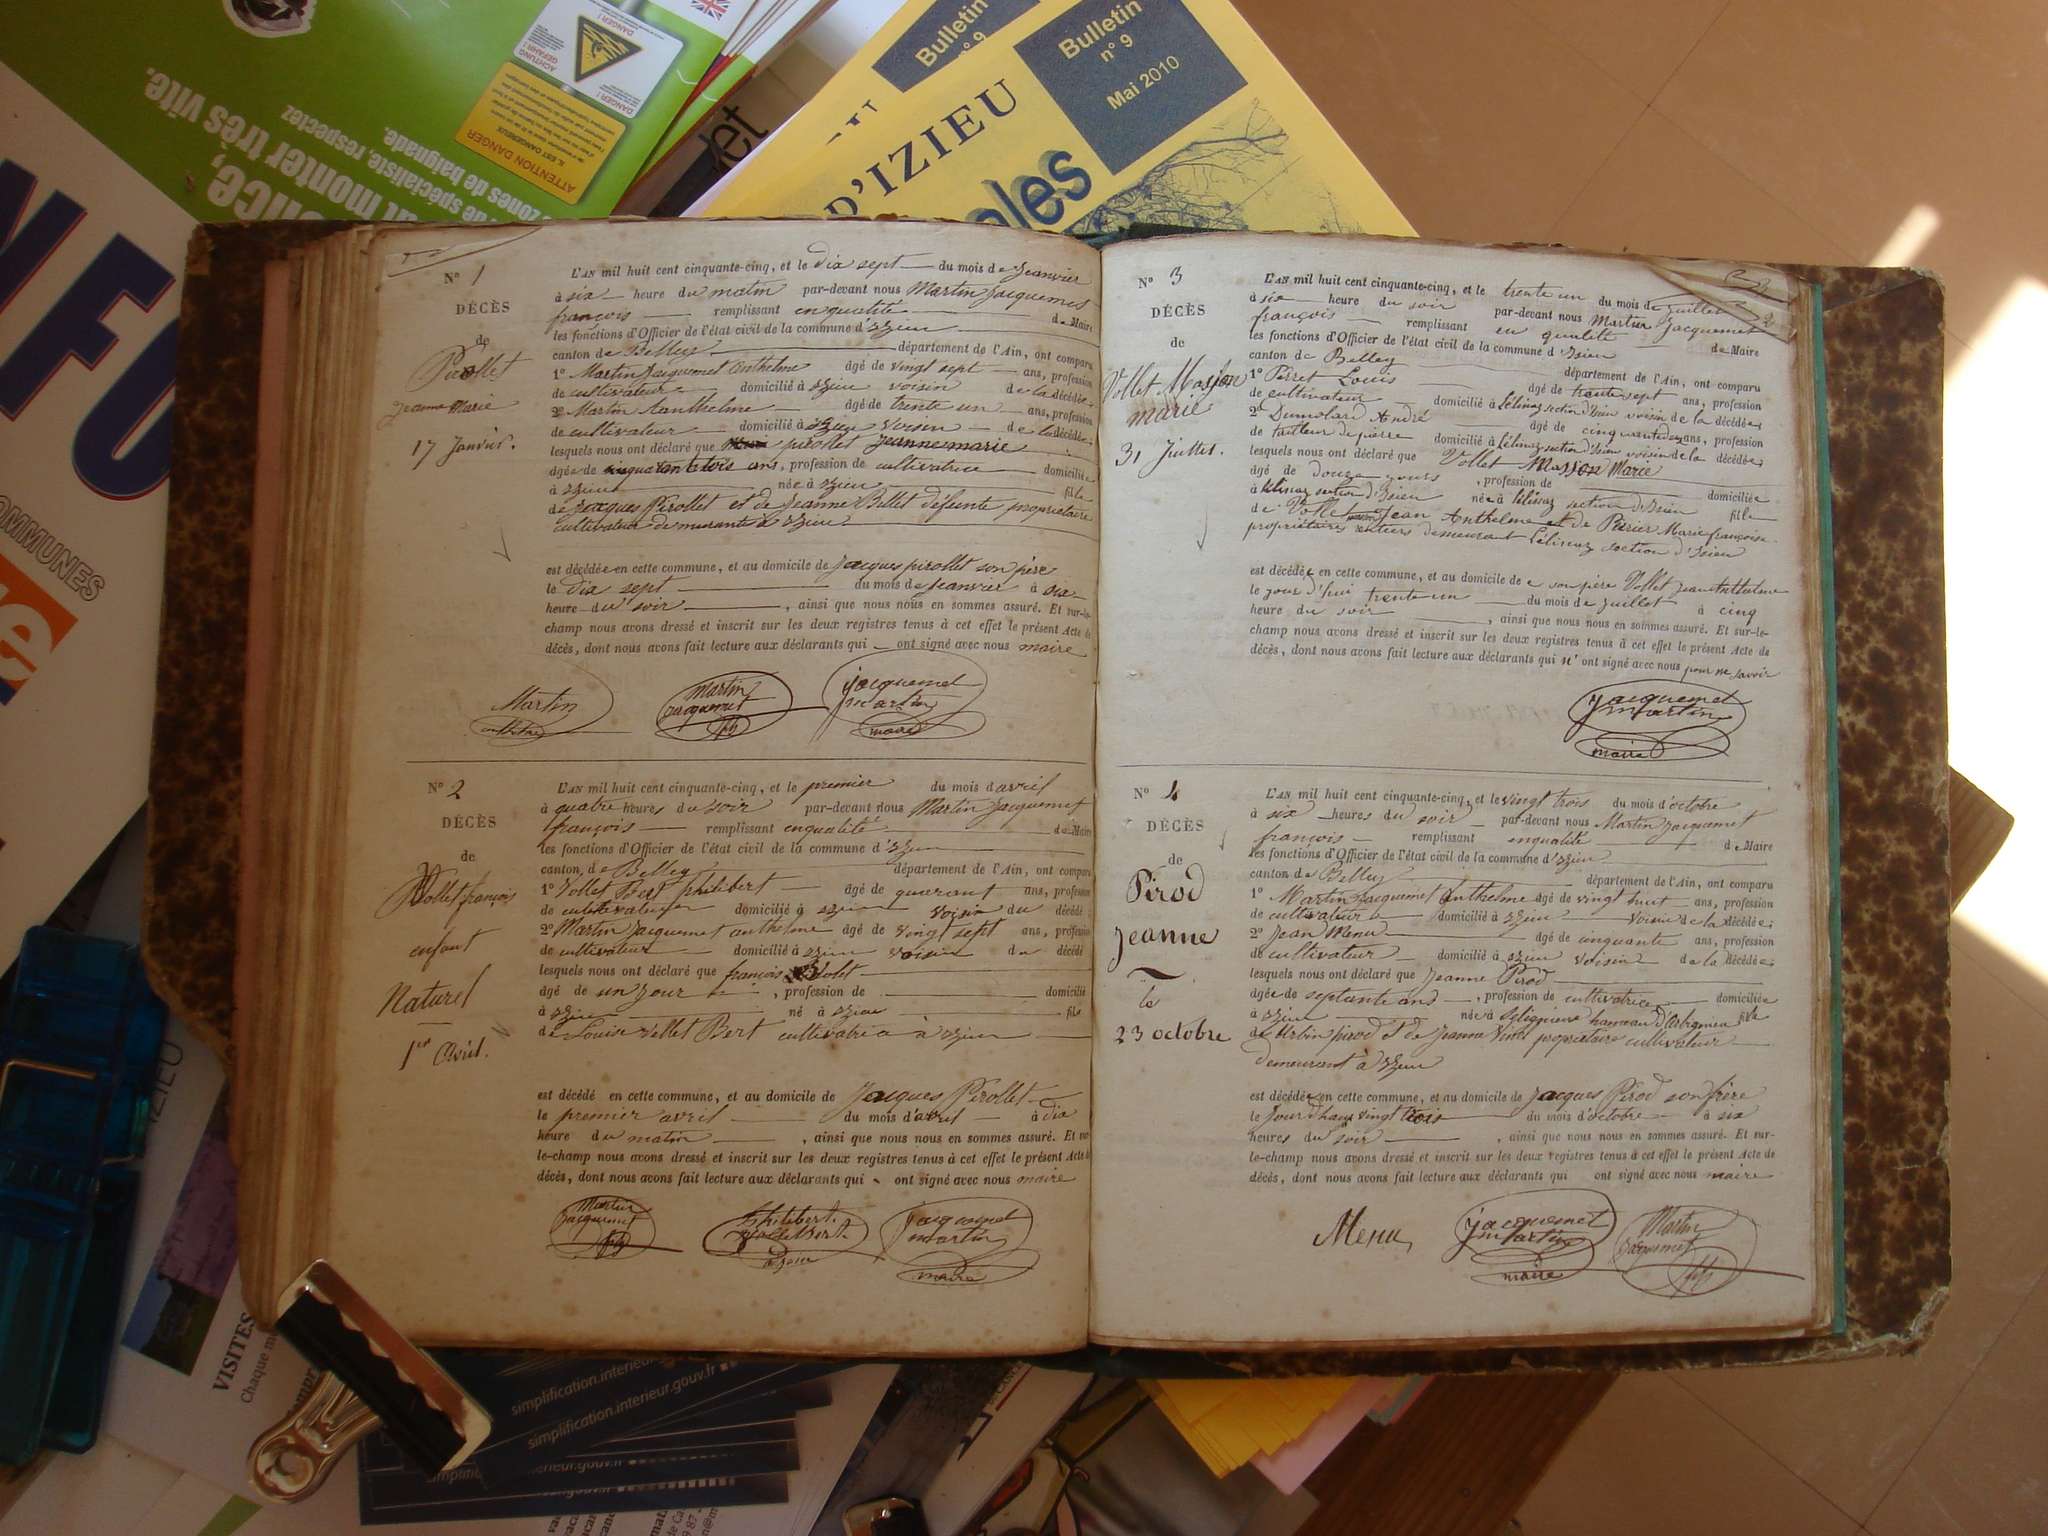 DANGER !
ACHTUNG GEFAHR !
DANGER !
ATTENTION DANGER
IL EST DANGEREUX
ut monter très vite.
de spécialiste, respectez
zones de baignade.
Bulletin
n° 9
Bulletin
n° 9
Mai 2010
D'IZIEU
NFO
OMMUNES
N° 1
DÉCÈS
de
Pirollet
Jeanne Marie
17 Janvier.
L'AN mil huit cent cinquante-cinq, et le dix sept du mois de Jeanvier
à six heure du matin par-devant nous Martin Jacquemet
françois remplissant en qualité de Maire
les fonctions d'Officier de l'état civil de la commune d'Izieu
canton de Belley département de l'Ain, ont comparu
1° Martin Jacquemet Anthelme âgé de vingt sept ans, profession
de cultivateur domicilié à Izieu voisin de la décédée
2° Martin Aanthelme âgé de trente un ans, profession
de cultivateur domicilié à Izieu voisin de la décédée
lesquels nous ont déclaré que pirollet Jeanne marie
âgée de cinquante trois ans, profession de cultivatrice domiciliée
à Izieu née à Izieu fille
de Jacques Pirollet et de Jeanne Billet défeunte propriétaire
cultivateur demeurante à Izieu
est décédée en cette commune, et au domicile de Jacques pirollet son père
le dix sept du mois de Jeanvier à dix
heure du soir, ainsi que nous nous en sommes assuré. Et sur-le-
champ nous avons dressé et inscrit sur les deux registres tenus à cet effet le présent Acte de
décès, dont nous avons fait lecture aux déclarants qui ont signé avec nous maire
Martin
anthelme
Martin
Jacquemet
Jacquemet
martin
maire
N° 2
DÉCÈS
de
Vollet françois
enfant
Naturel
1er Avril.
L'AN mil huit cent cinquante-cinq, et le premier du mois d'avril
à quatre heures du soir par-devant nous Martin Jacquemet
françois remplissant enqualité de Maire
les fonctions d'Officier de l'état civil de la commune d'Izieu
canton de Belley département de l'Ain, ont comparu
1° Vollet Bert philibert âgé de quarant ans, profession
de cultivateur domicilié à Izieu voisin du décédé
2° Martin Jacquemet anthelme âgé de vingt sept ans, profession
de cultivateur domicilié à Izieu voisin du décédé
lesquels nous ont déclaré que françois Volet
âgé de un jour, profession de domicilié
à Izieu né à Izieu fils
de Louise Vollet Bert cultivatrice à Izieu
est décédé en cette commune, et au domicile de Jacques Pirollet
le premier avril du mois d'avril à dix
heure du matin, ainsi que nous nous en sommes assuré. Et sur-
le-champ nous avons dressé et inscrit sur les deux registres tenus à cet effet le présent Acte de
décès, dont nous avons fait lecture aux déclarants qui ont signé avec nous maire
Martin
Jacquemet
Philibert
Vollet Bert
Izieu
Jacquemet
martin
maire
N° 3
DÉCÈS
de
Vollet Masson
marie
31 Juillet.
L'AN mil huit cent cinquante-cinq, et le trente un du mois de juillet
à six heure du soir par-devant nous Martin Jacquemet
françois remplissant en qualité de Maire
les fonctions d'Officier de l'état civil de la commune d'Izieu
canton de Belley département de l'Ain, ont comparu
1° Perret Louis âgé de trente sept ans, profession
de cultivateur domicilié à Lélinaz section d'Izieu voisin de la décédée
2° Dumolard André âgé de cinquante deux ans, profession
de tailleur de pierre domicilié à Lélinaz section d'Izieu voisin de la décédée
lesquels nous ont déclaré que Vollet Masson Marie
âgé de douze jours, profession de domiciliée
à Lélinaz section d'Izieu née à Lélinaz section d'Izieu fille
de Vollet Jean Anthelme et de Périer Marie françoise
propriétaires rentiers demeurant Lélinaz section d'Izieu
est décédée en cette commune, et au domicile de son père Vollet Jean Anthelme
le jour d'hui trente un du mois de juillet à cinq
heure du soir, ainsi que nous nous en sommes assuré. Et sur-le-
champ nous avons dressé et inscrit sur les deux registres tenus à cet effet le présent Acte de
décès, dont nous avons fait lecture aux déclarants qui n'ont signé avec nous pour ne savoir
Jacquemet
martin
maire
N° 4
DÉCÈS
de
Pirod
Jeanne
le
23 octobre
L'AN mil huit cent cinquante-cinq, et le vingt trois du mois d'octobre
à six heures du soir par-devant nous Martin Jacquemet
françois remplissant enqualité de Maire
les fonctions d'Officier de l'état civil de la commune d'Izieu
canton de Belley département de l'Ain, ont comparu
1° Martin Jacquemet Anthelme âgé de vingt huit ans, profession
de cultivateur domicilié à Izieu voisin de la décédée
2° Jean Menu âgé de cinquante ans, profession
de cultivateur domicilié à Izieu voisin de la décédée
lesquels nous ont déclaré que Jeanne Pirod
âgée de septante ans, profession de cultivatrice domiciliée
à Izieu née à hameau d'Arbignieu fille
de Urbin pirod & de Jeanne propriétaire cultivateur
demeurant à Izieu
est décédée en cette commune, et au domicile de Jacques Pirod son frère
le jourdhui vingt trois du mois d'octobre à six
heures du soir, ainsi que nous nous en sommes assuré. Et sur-
le-champ nous avons dressé et inscrit sur les deux registres tenus à cet effet le présent Acte de
décès, dont nous avons fait lecture aux déclarants qui ont signé avec nous maire
Menu
Jacquemet
martin
maire
Martin
Jacquemet
VISITES
Chaque
simplification.interieur.gouv.fr
simplification.interieur.gouv.fr